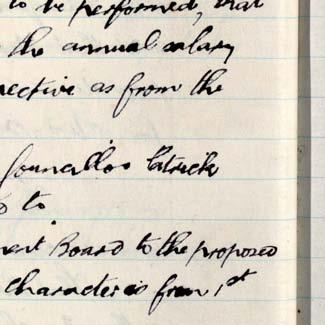 to be performed, that
the annual salary
ective as from the
Councillor Patrick
to
ment Board to the proposed
character is from 1st